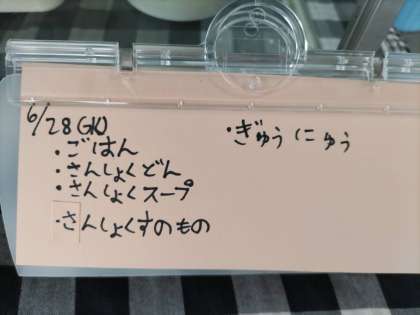 6/28(水)
・ごはん
・さんしょくどん
・さんしょくスープ
・さんしょくすのもの
・ぎゅうにゅう